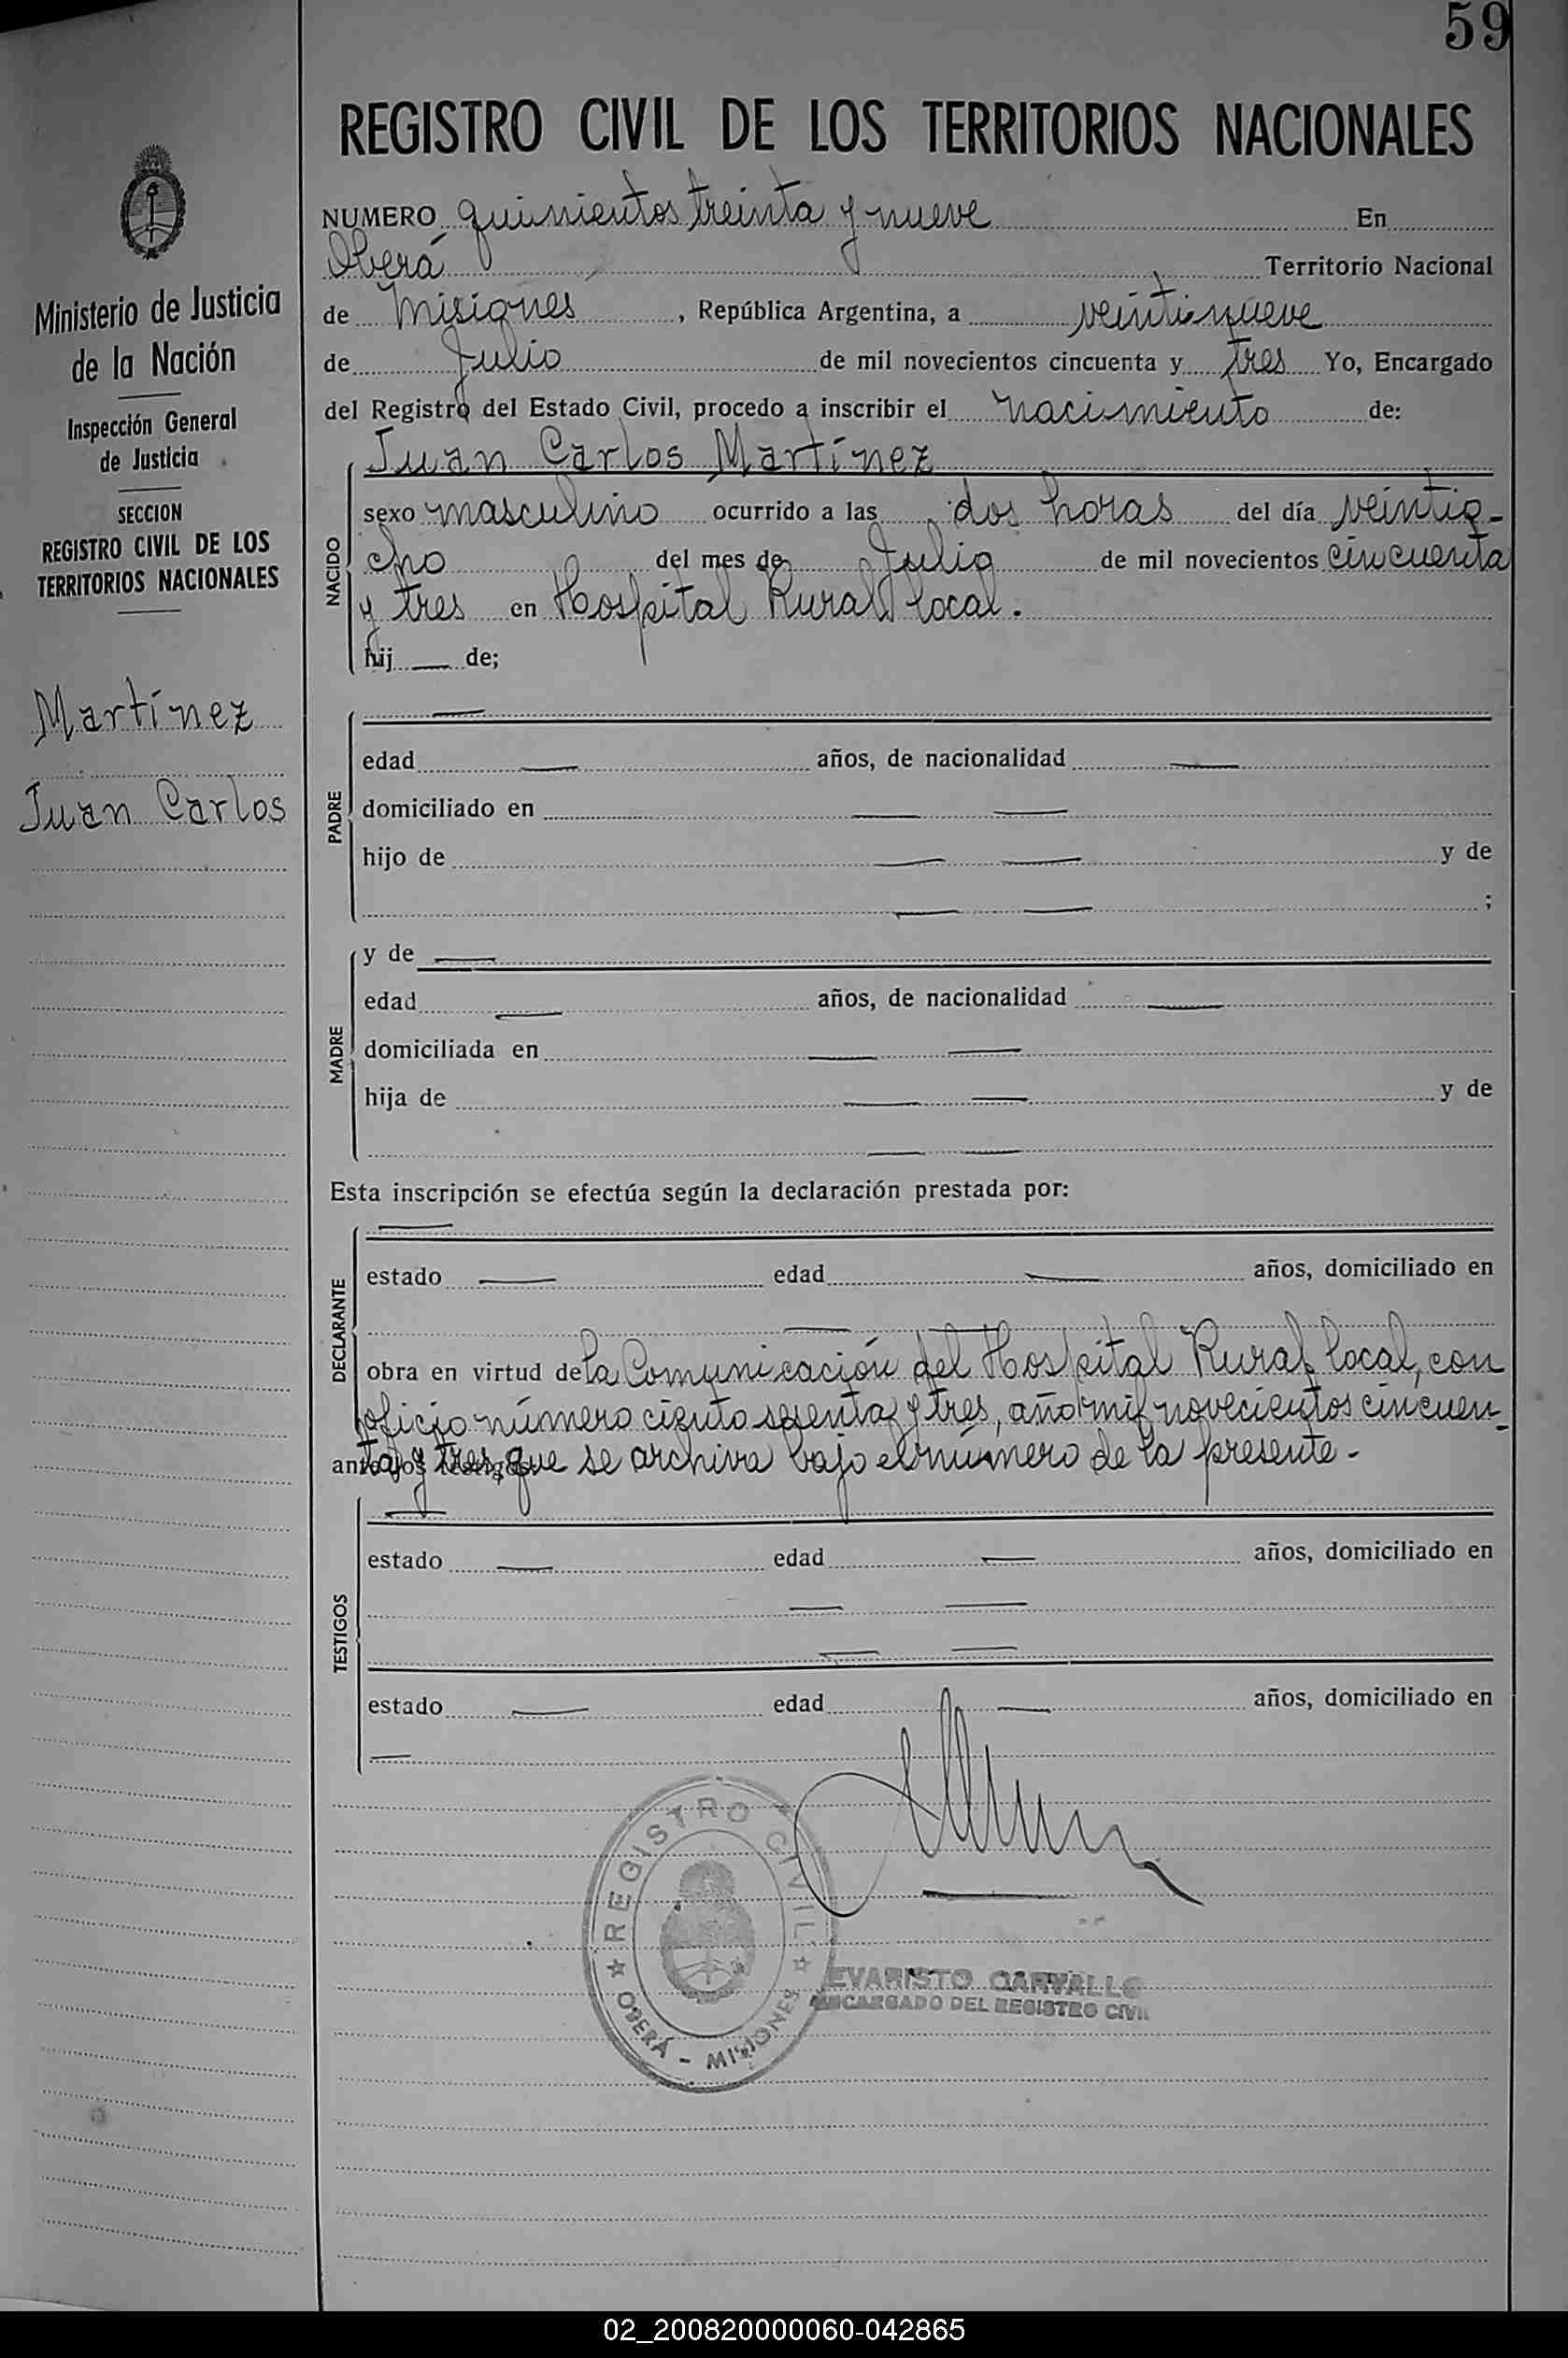 59
REGISTRO CIVIL DE LOS TERRITORIOS NACIONALES
Ministerio de Justicia
de la Nación
Inspección General
de Justicia
SECCION
REGISTRO CIVIL DE LOS
TERRITORIOS NACIONALES
Martínez
Juan Carlos
NUMERO quinientos treinta y nueve En
Oberá Territorio Nacional
de Misiones, República Argentina, a veintinueve
de Julio de mil novecientos cincuenta y tres Yo, Encargado
del Registro del Estado Civil, procedo a inscribir el nacimiento de:
NACIDO
Juan Carlos Martínez
sexo masculino ocurrido a las dos horas del día veintio-
cho del mes de Julio de mil novecientos cincuenta
y tres en Hospital Rural local.
hij — de;
PADRE
—
edad — años, de nacionalidad —
domiciliado en — —
hijo de — — y de
— — ;
MADRE
y de —
edad — años, de nacionalidad —
domiciliada en — —
hija de — — y de
— —
Esta inscripción se efectúa según la declaración prestada por:
DECLARANTE
—
estado — edad — años, domiciliado en
— —
obra en virtud de la Comunicación del Hospital Rural local, con
oficio número ciento sesenta y tres, año mil novecientos cincuen-
ante los testigos:
ta y tres, que se archiva bajo el número de la presente-
TESTIGOS
—
estado — edad — años, domiciliado en
— —
— —
estado — edad — años, domiciliado en
—
REGISTRO CIVIL
OBERÁ - MISIONES
EVARISTO CARVALLO
ENCARGADO DEL REGISTRO CIVIL
02_200820000060-042865